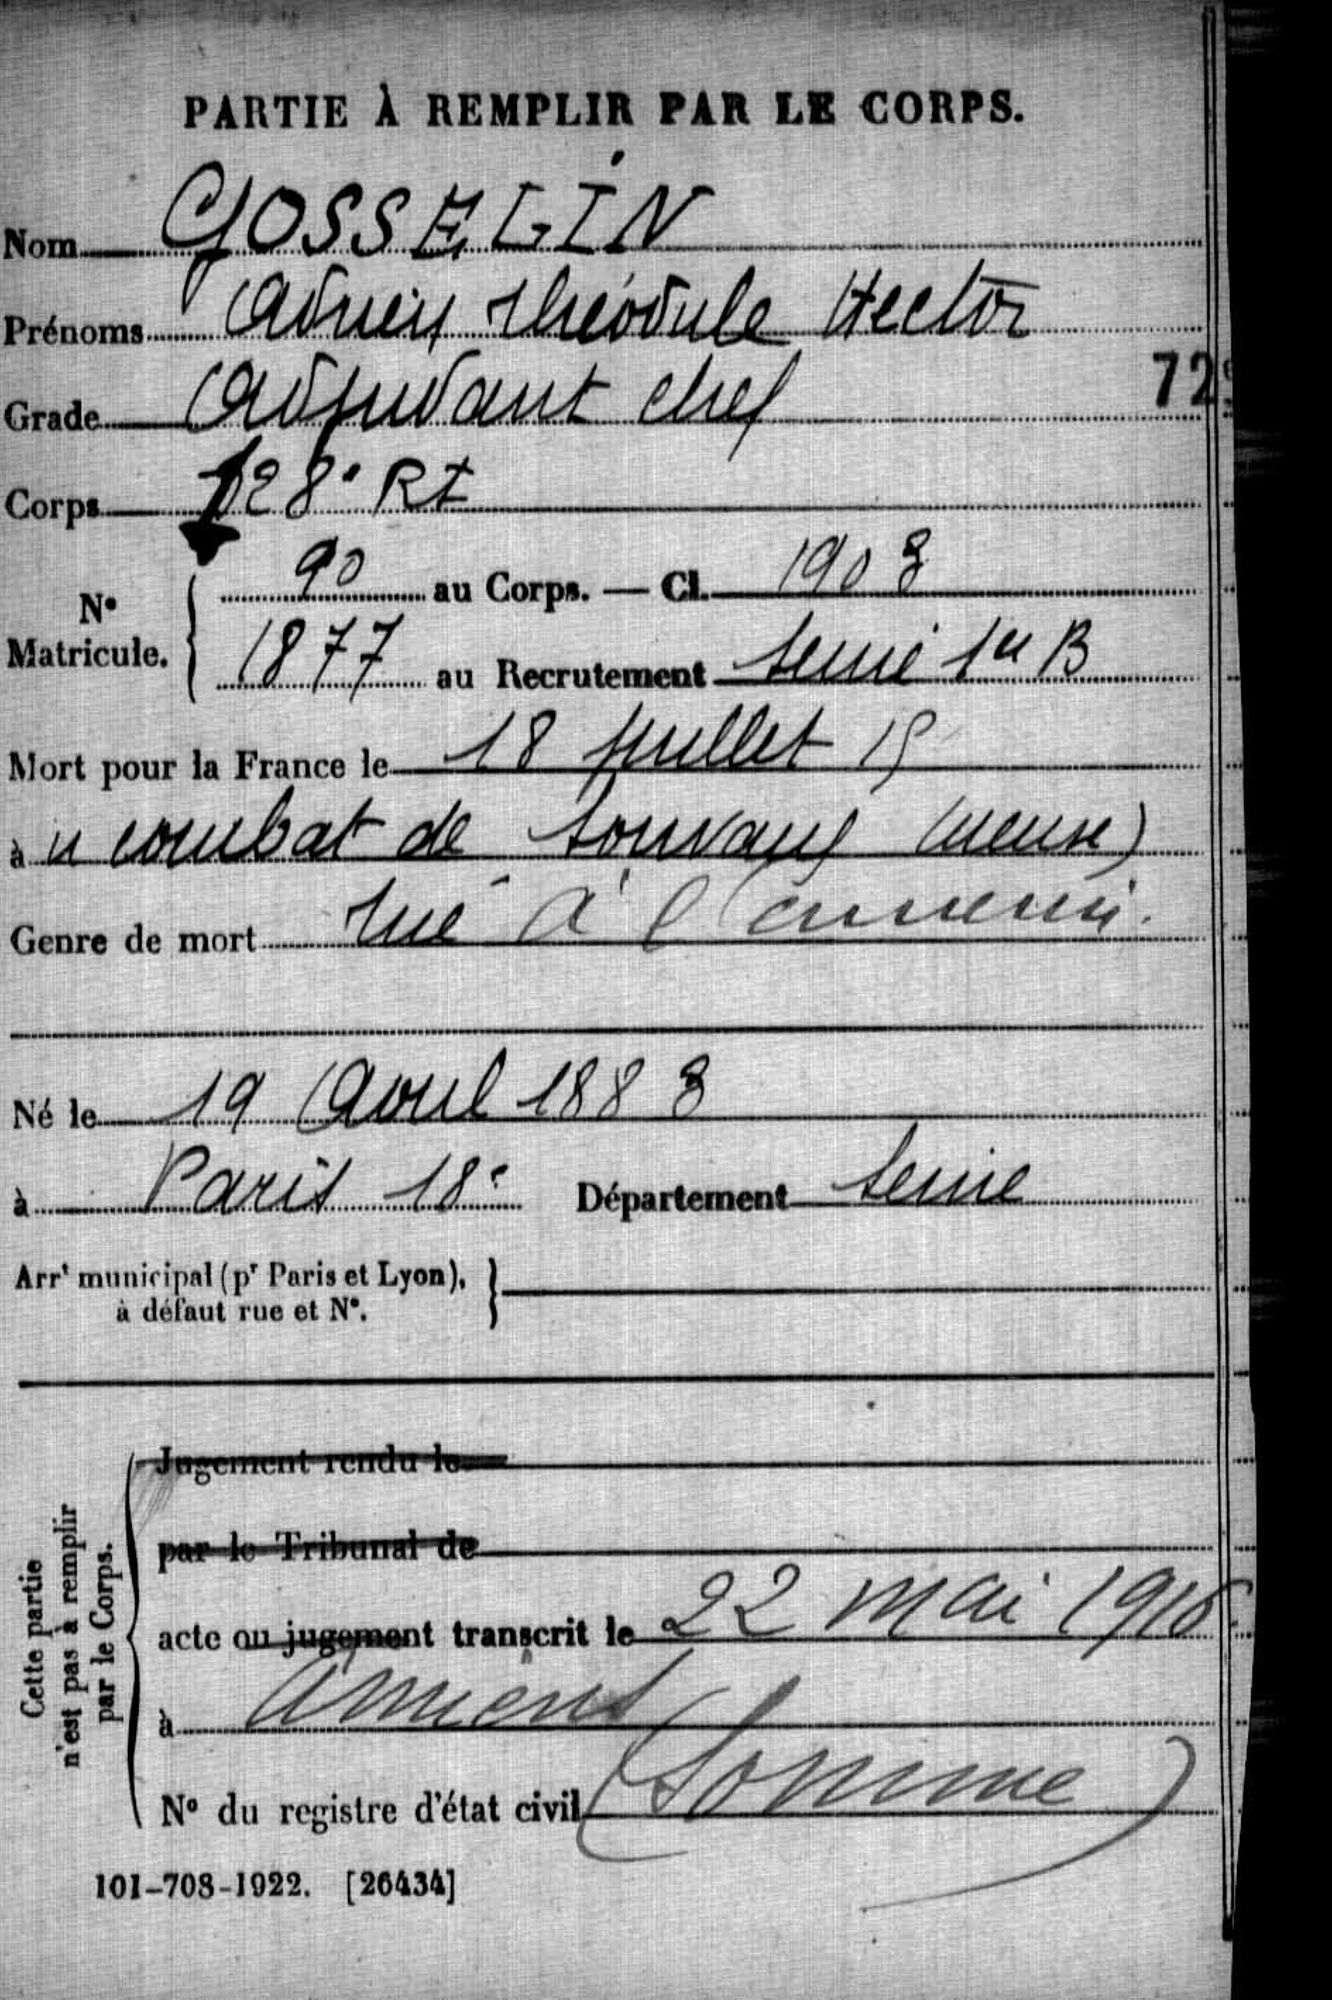 PARTIE À REMPLIR PAR LE CORPS.
Nom GOSSELIN
Prénoms Adrien Théodule Hector
Grade Adjudant chef
72e
Corps 128e Rt
No Matricule. { 90 au Corps. — Cl. 1903
1877 au Recrutement Seine 1er B
Mort pour la France le 18 Juillet 15
à u combat de Souvaux (Meuse)
Genre de mort tué à l'ennemi.
Né le 19 Avril 1883
à Paris 18e Département Seine
Arrt municipal (pr Paris et Lyon),
à défaut rue et No. }
Cette partie
n'est pas à remplir
par le Corps.
Jugement rendu le
par le Tribunal de
acte ou jugement transcrit le 22 mai 1916
à Amiens
No du registre d'état civil (Somme)
101-708-1922. [26434]